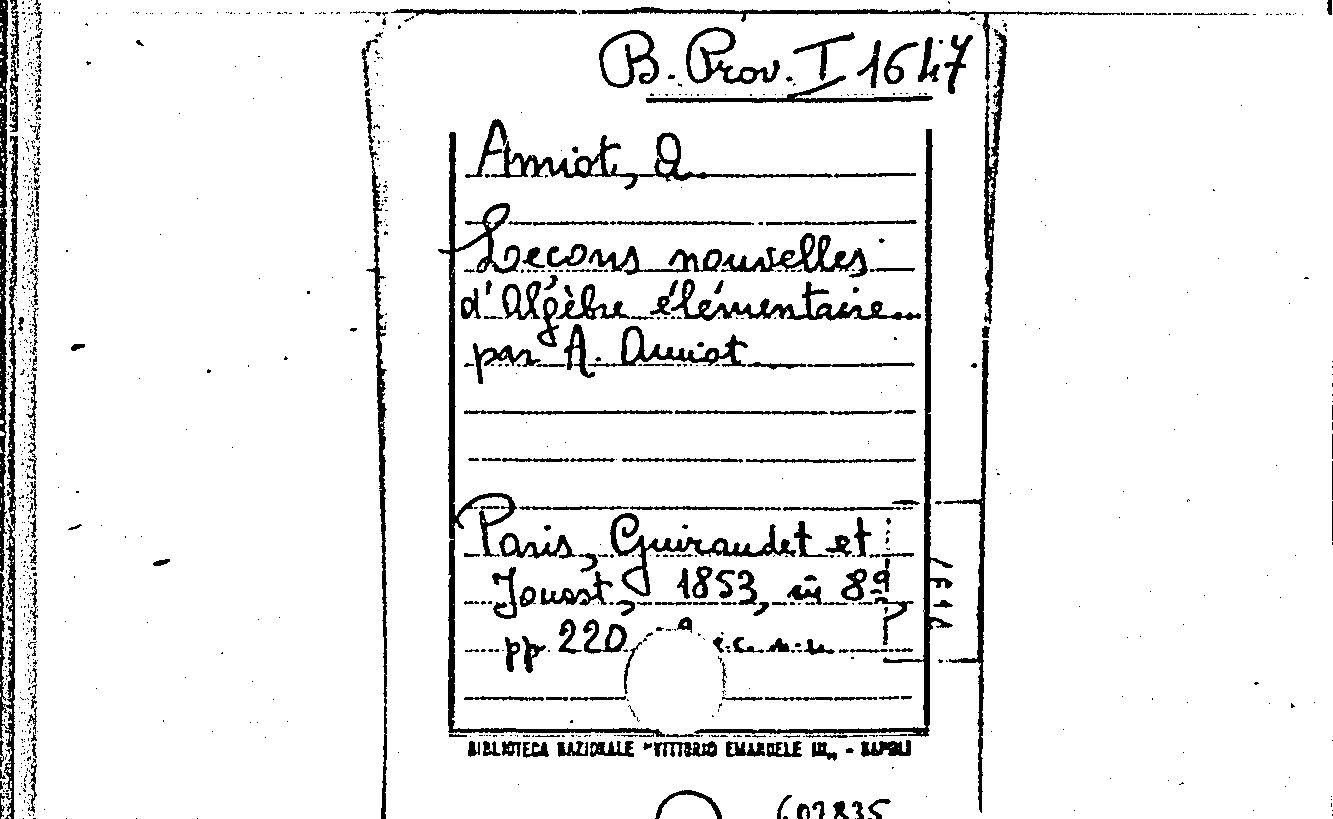 B. Prov. I 1647
Amiot, A.
Leçons nouvelles
d'Algèbre élémentaire...
par A. Amiot
Paris, Guiraudet et
Jouast, 1853, in 8º
pp 220
BIBLIOTECA NAZIONALE "VITTORIO EMANUELE III„ - NAPOLI